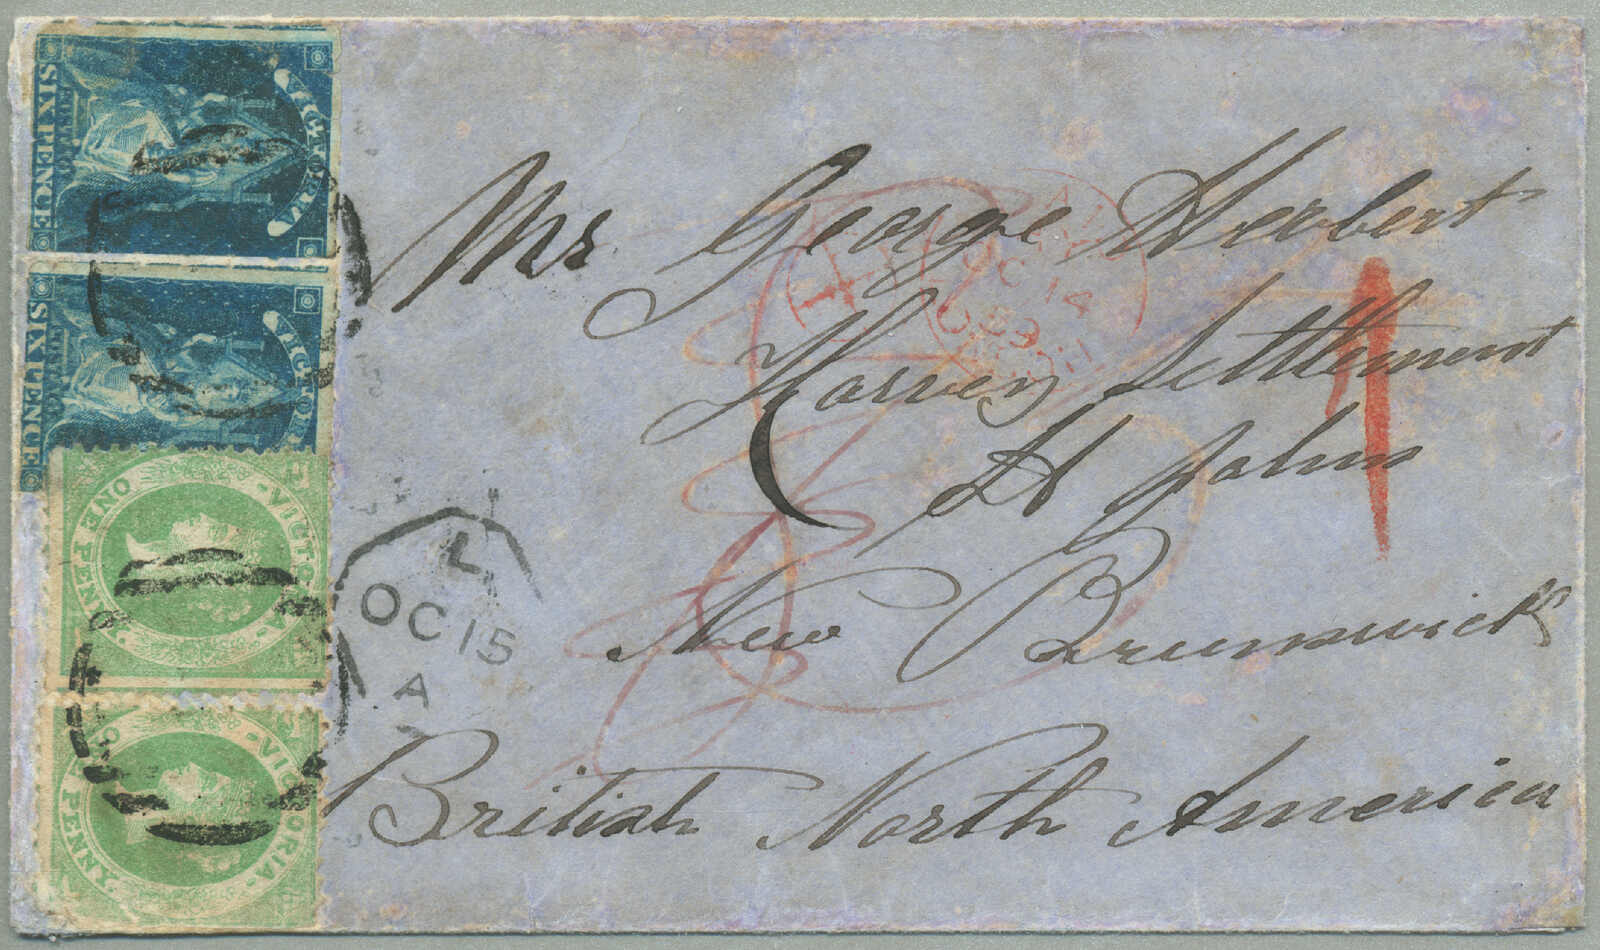 VICTORIA
POSTAGE
SIX PENCE
VICTORIA
POSTAGE
SIX PENCE
VICTORIA
ONE PENNY
VICTORIA
ONE PENNY
Mr George Herbert
Harvey Settlement
St John
New Brunswick
British North America
OC 14
59
L
OC 15
A
1